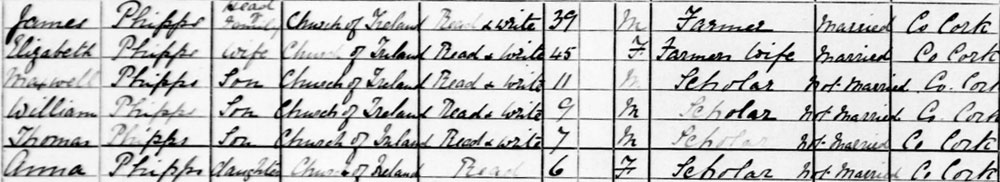 James Phipps Head of Family Church of Ireland Read & write 39 M Farmer Married Co Cork
Elizabeth Phipps Wife Church of Ireland Read & Write 45 F Farmers Wife Married Co Cork
Maxwell Phipps Son Church of Ireland Read & Write 11 M Scholar Not Married Co. Cork
William Phipps Son Church of Ireland Read & Write 9 M Scholar Not Married Co. Cork
Thomas Phipps Son Church of Ireland Read & write 7 M Scholar Not Married Co Cork
Anna Phipps daughter Church of Ireland Read 6 F Scholar Not Married Co Cork